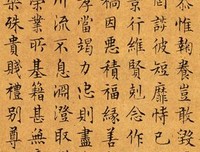 恭惟鞠養豈敢毀
罔談彼短靡恃己
景行維賢剋念作
禍因惡積福緣善
當竭力忠則盡
川流不息淵澄取
榮業所基籍甚無
樂殊貴賤禮別尊